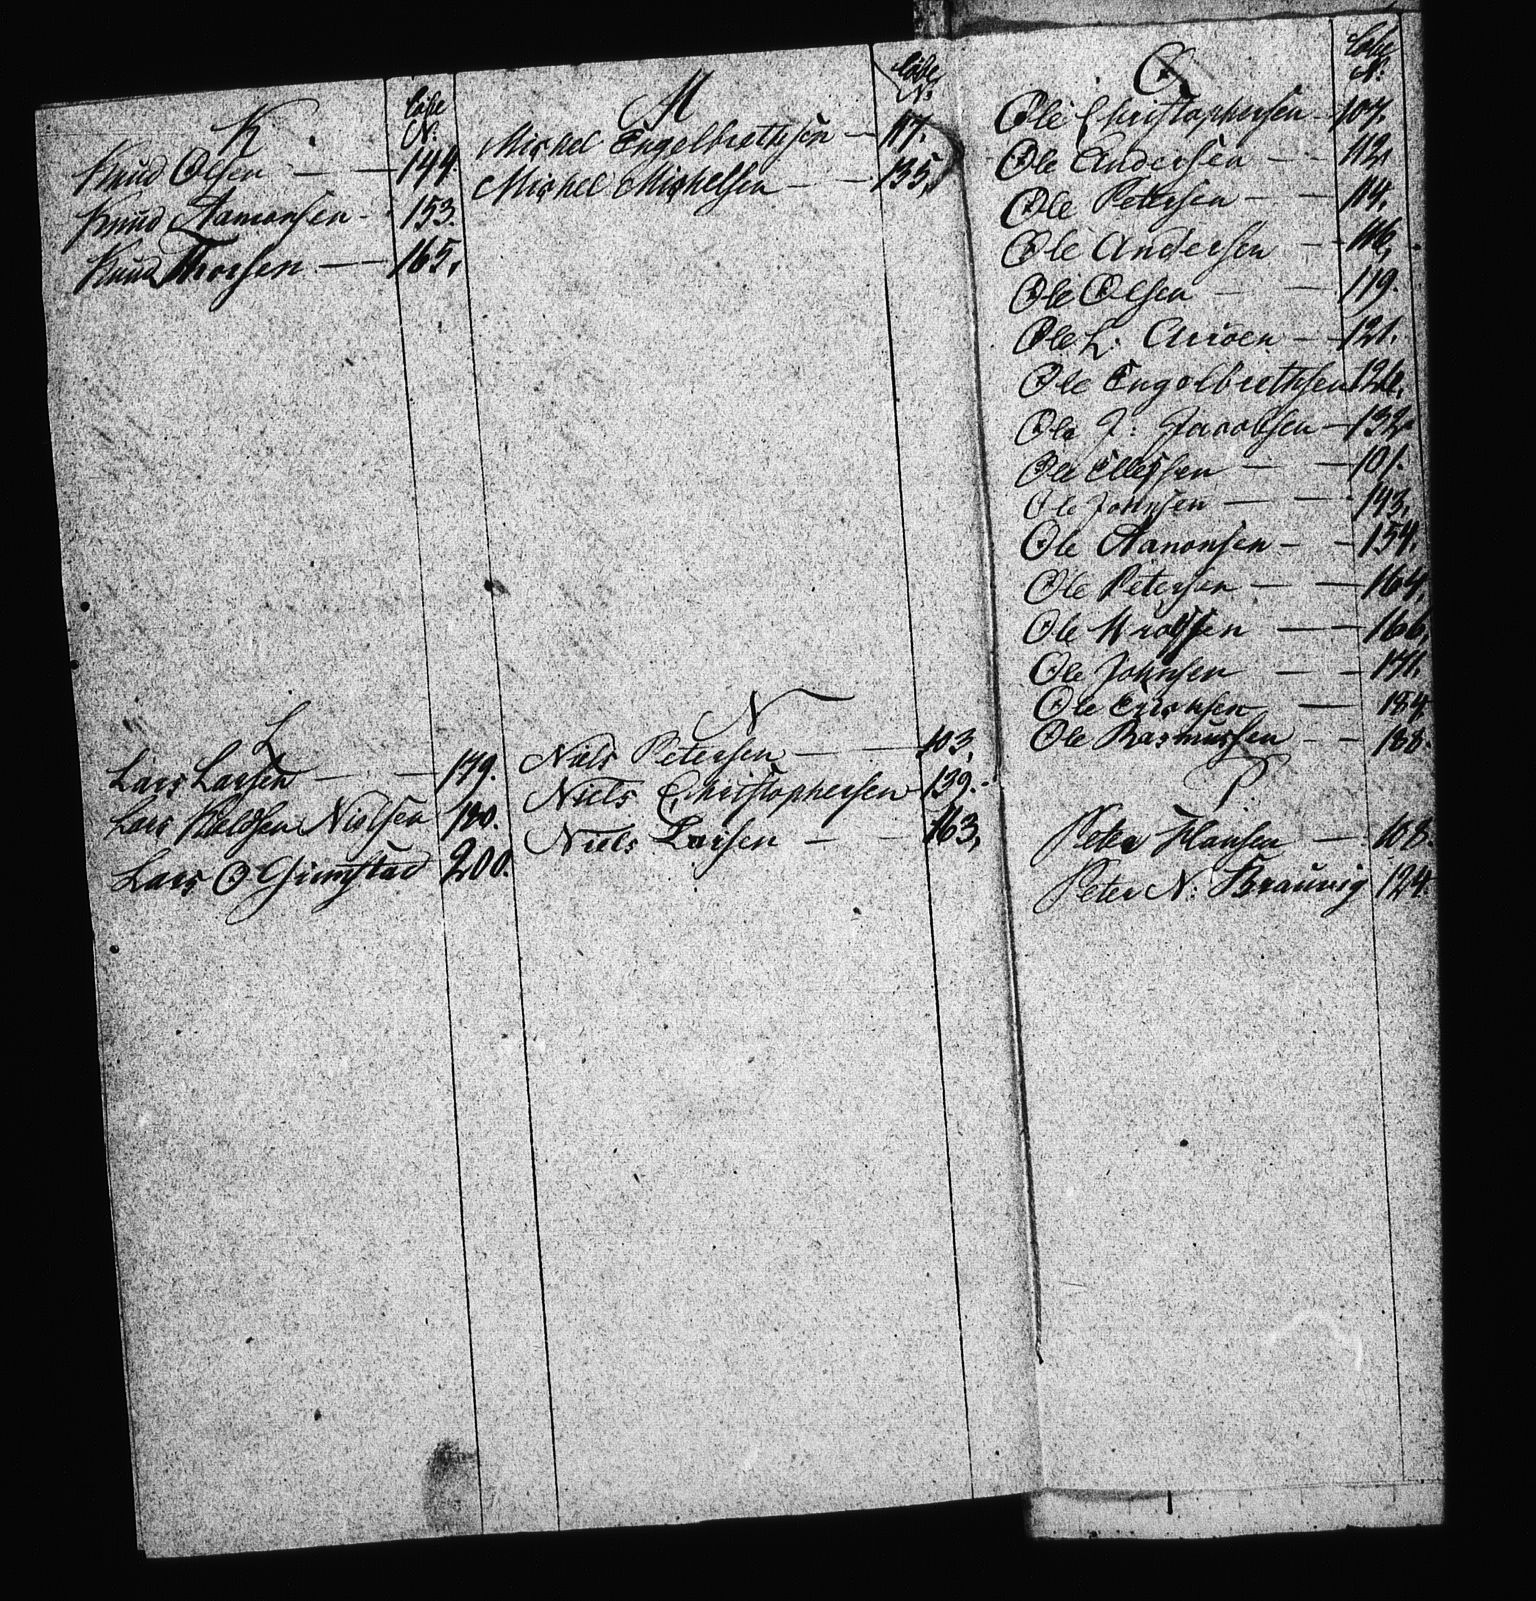 K.
Løbe
N.
Knud Olsen — — 144.
Knud Aamonsen - 153.
Knud Thorsen — 165.
L
Lars Larsen — — 179.
Lars Nielsen 180.
Lars O Grimstad 200.
M
Løbe
N:
Michel Engelbrethsen — 117.
Michel Michelsen — — 135.
N
Niels Petersen — — 103.
Niels Christophersen 139.
Niels Larsen — — 163.
O
Løbe
N:
Ole Christophersen - 107.
Ole Andersen — — 112.
Ole Petersen — — 114.
Ole Andersen — — 116.
Ole Olsen — — 119.
Ole L. — — 121.
Ole Engelbrethsen 126.
Ole J: Jacobsen — 132.
Ole Ellefsen — — 101.
Ole Johnsen — — 143.
Ole Aanonsen — — 154.
Ole Petersen — — 164.
Ole — — 166.
Ole Johnsen — — 171.
Ole Erichsen — 184.
Ole Rasmussen — — 188.
P
Peter Hansen — 108.
Peter N: 124.